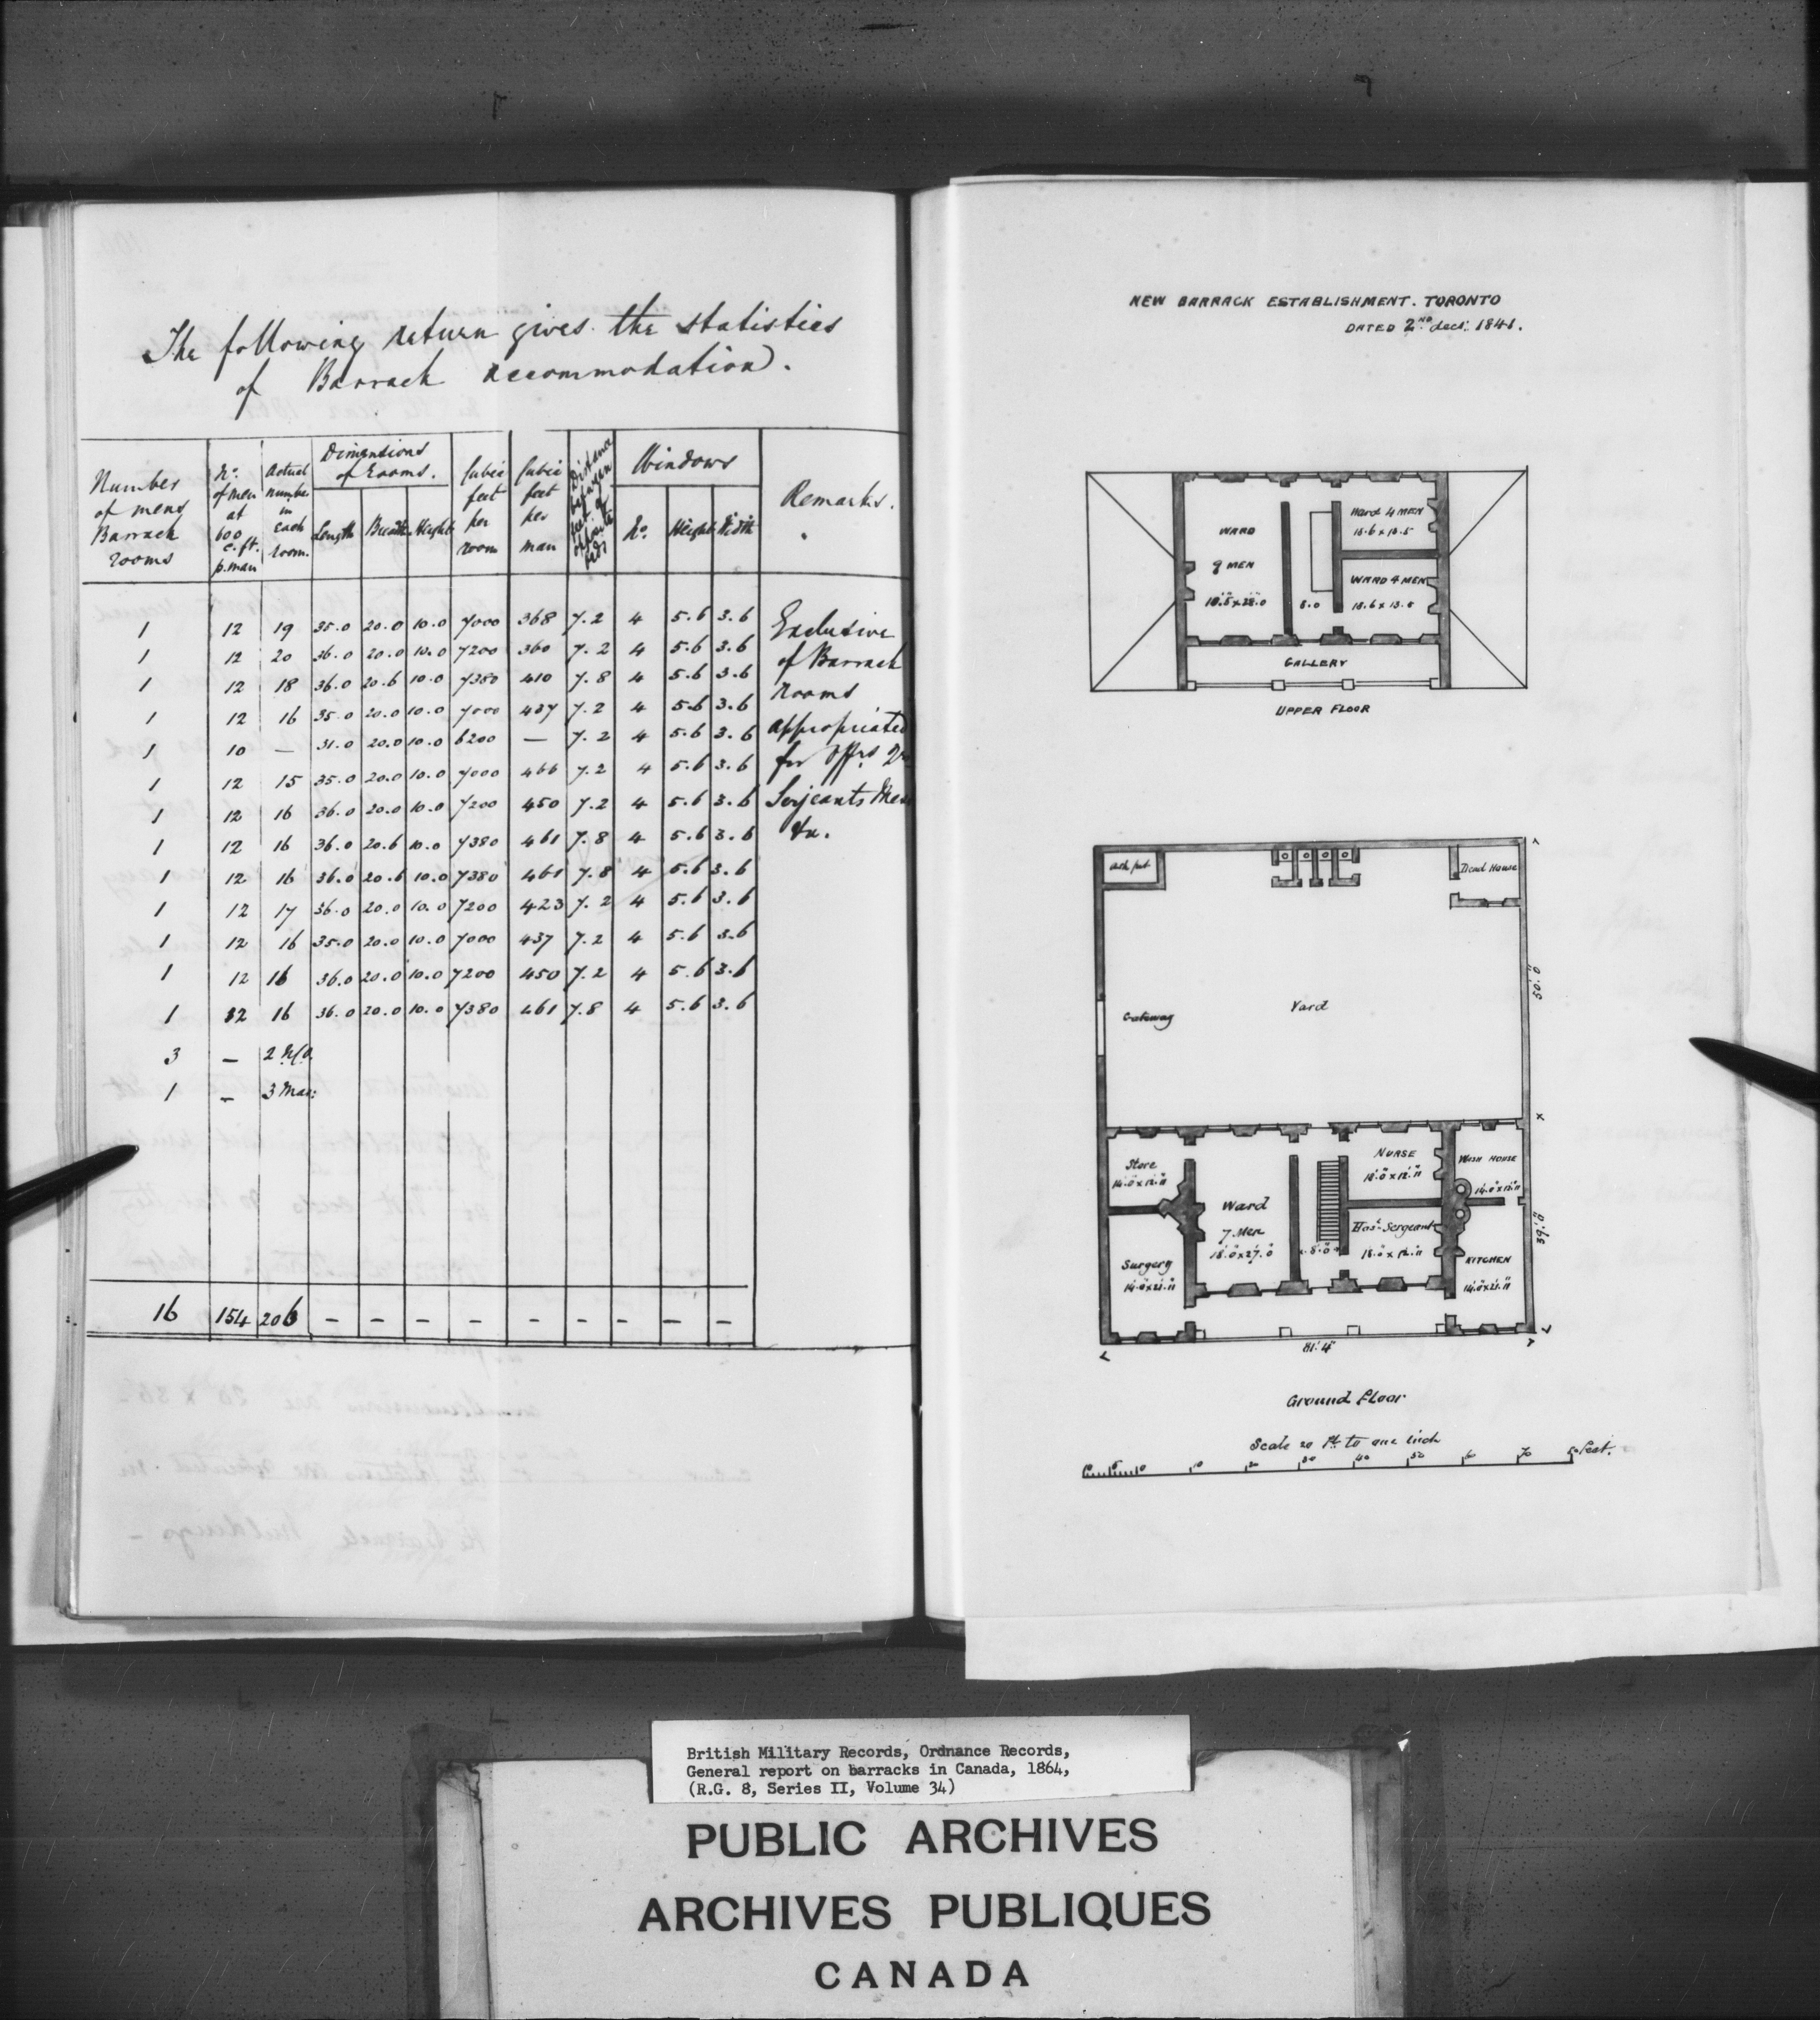 The following return gives the statistics
of Barrack accommodation.
Number of mens Barrack rooms | No. of men at 600 c.ft. p.man | Actual number in each room. | Dimentions of Rooms. Length Breadth Height | Cubic feet per room | Cubic feet per man | Distance between feet of opposite beds | Windows No. Height Width | Remarks.
1 12 19 35.0 20.0 10.0 7000 368 7.2 4 5.6 3.6 Exclusive
1 12 20 36.0 20.0 10.0 7200 360 7.2 4 5.6 3.6 of Barrack
1 12 18 36.0 20.6 10.0 7380 410 7.8 4 5.6 3.6 rooms
1 12 16 35.0 20.0 10.0 7000 437 7.2 4 5.6 3.6 appropriated
1 10 — 31.0 20.0 10.0 6200 — 7.2 4 5.6 3.6 for Offrs
1 12 15 35.0 20.0 10.0 7000 466 7.2 4 5.6 3.6
1 12 16 36.0 20.0 10.0 7200 450 7.2 4 5.6 3.6 Serjeants Mess
1 12 16 36.0 20.6 10.0 7380 461 7.8 4 5.6 3.6 &c.
1 12 16 36.0 20.6 10.0 7380 461 7.8 4 5.6 3.6
1 12 17 36.0 20.0 10.0 7200 423 7.2 4 5.6 3.6
1 12 16 35.0 20.0 10.0 7000 437 7.2 4 5.6 3.6
1 12 16 36.0 20.0 10.0 7200 450 7.2 4 5.6 3.6
1 12 16 36.0 20.0 10.0 7380 461 7.8 4 5.6 3.6
3 — 2
1 — 3
16 154 206 – – – – – – – – –
NEW BARRACK ESTABLISHMENT. TORONTO
DATED 2ND decr. 1841.
WARD
9 MEN
18.5 x 28.0
8.0
Ward 4 MEN
18.6 x 13.5
WARD 4 MEN
18.6 x 13.5
GALLERY
UPPER FLOOR
Ash pit
Dead House
Gateway
Yard
50'.0"
Store
14.0 x 12.11
Surgery
14.0 x 21.11
Ward
7 Men
18.0 x 27.0
8.0
NURSE
18.0 x 12.11
Hosl. Sergeant
18.0 x 12.11
WASH HOUSE
14.0 x 12.11
KITCHEN
14.0 x 21.11
39'.0"
81'.4"
Ground Floor
Scale 20 Ft. to one inch
10 5 0 10 20 30 40 50 60 70 80 Feet.
British Military Records, Ordnance Records,
General report on barracks in Canada, 1864,
(R.G. 8, Series II, Volume 34)
PUBLIC ARCHIVES
ARCHIVES PUBLIQUES
CANADA